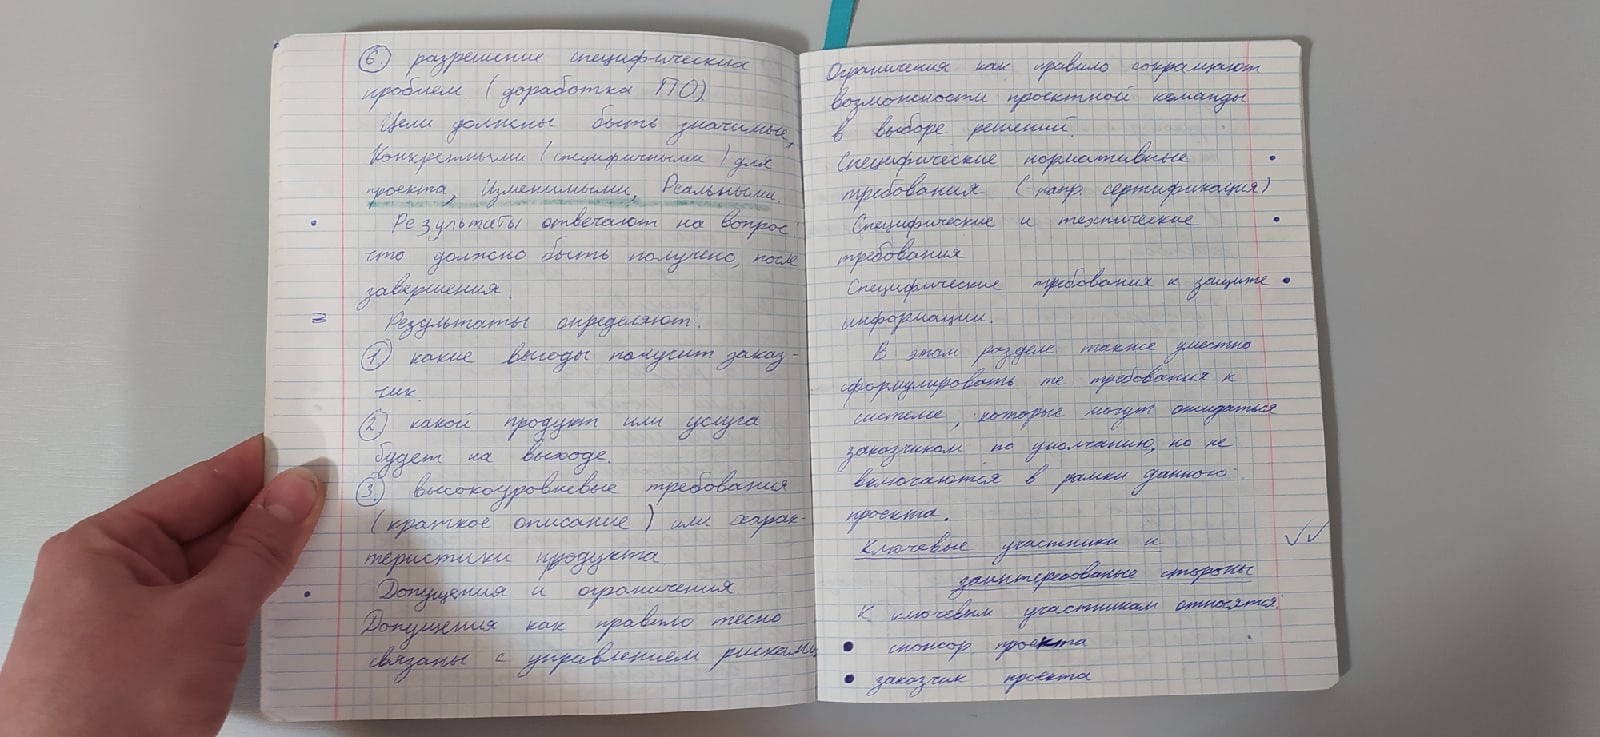 6. разрешение специфических
проблем (доработка ПО).
Цели должны быть значимые,
Конкретными (специфичными) для
проекта, Изменимыми, Реальными.
• Результаты отвечают на вопрос:
что должно быть получено, после
завершения.
= Результаты определяют.
1 какие выгоды получит заказ-
чик.
2 какой продукт или услуга
будет на выходе.
3 высокоуровневые требования
(краткое описание) или харак-
теристики продукта.
• Допущения и ограничения
Допущения как правило тесно
связаны с управлением рисками,
Ограничения как правило сокращают
возможности проектной команды
в выборе решений.
Специфические нормативные •
требования (напр. сертификация)
Специфические и технические •
требования
Специфические требования к защите •
информации.
В этом разделе также уместно
сформулировать те требования к
системе, которые могут ожидаться
заказчиком по умолчанию, но не
включаются в рамки данного
проекта.
Ключевые участники и
заинтересованые стороны
К ключевым участникам относятся:
• спонсор проекта
• заказчик проекта